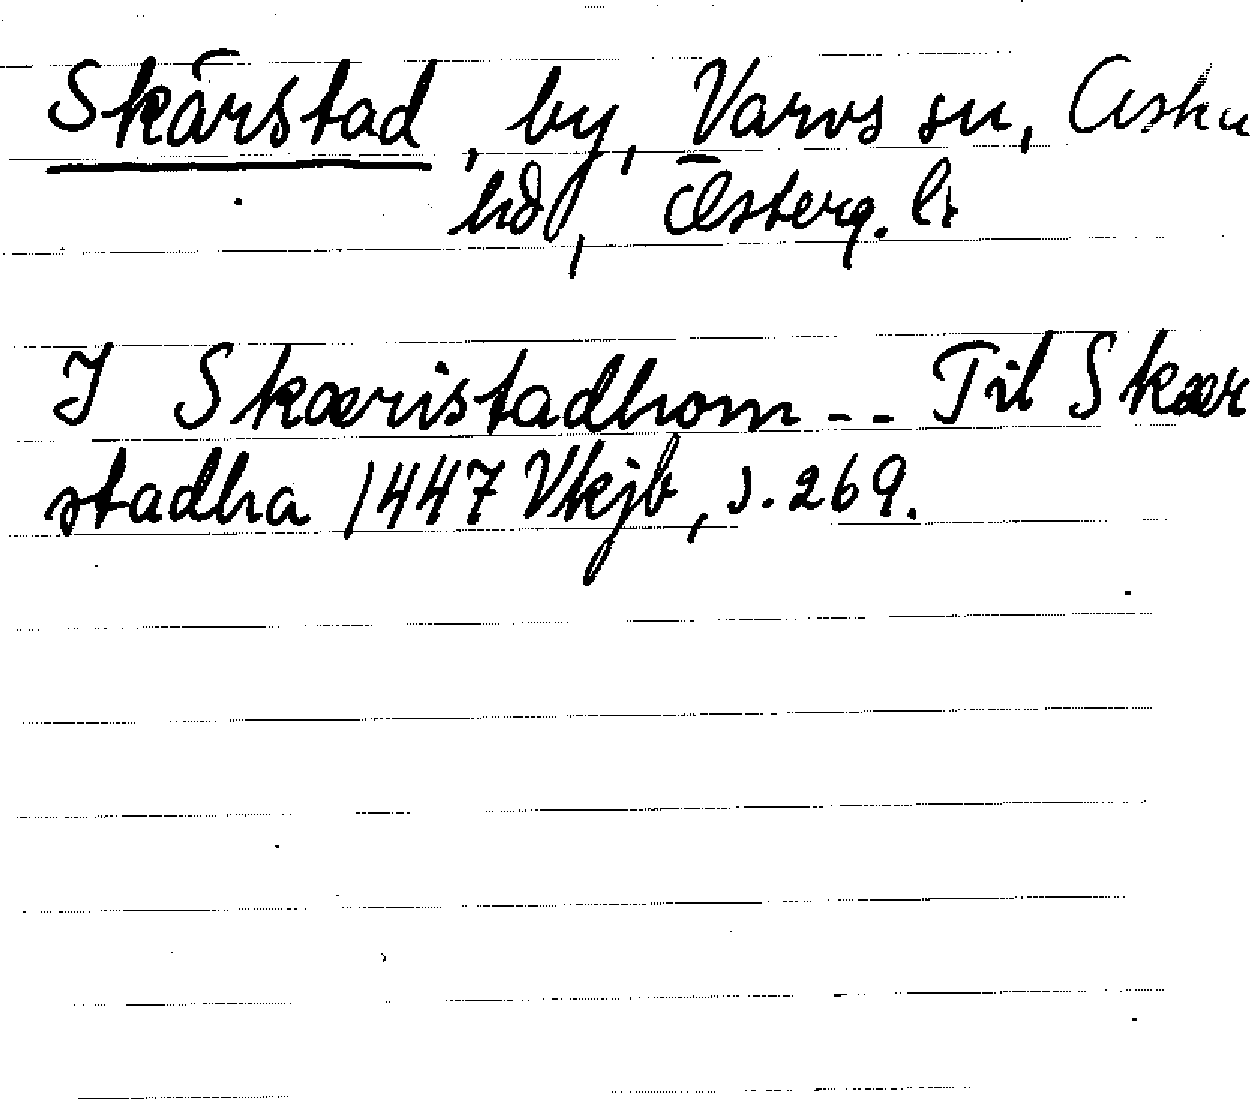 Skärstad, by, Varvs sn, Aska
hd, Österg. l.
I Skæristadhom -- Til Skær
stadha 1447 Vkjb, s. 269.